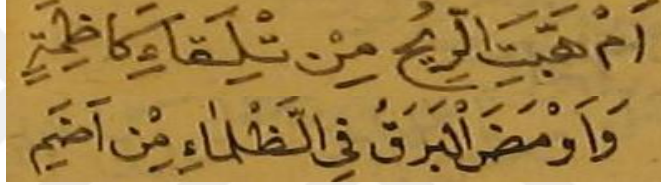 اَمْ هَبَّتِ الرِّيحُ مِنْ تِلْقَاءِ كَاظِمَةٍ
وَاَوْمَضَ الْبَرَقُ فِي الظَّلْمَاءِ مِنْ اَضَمِ